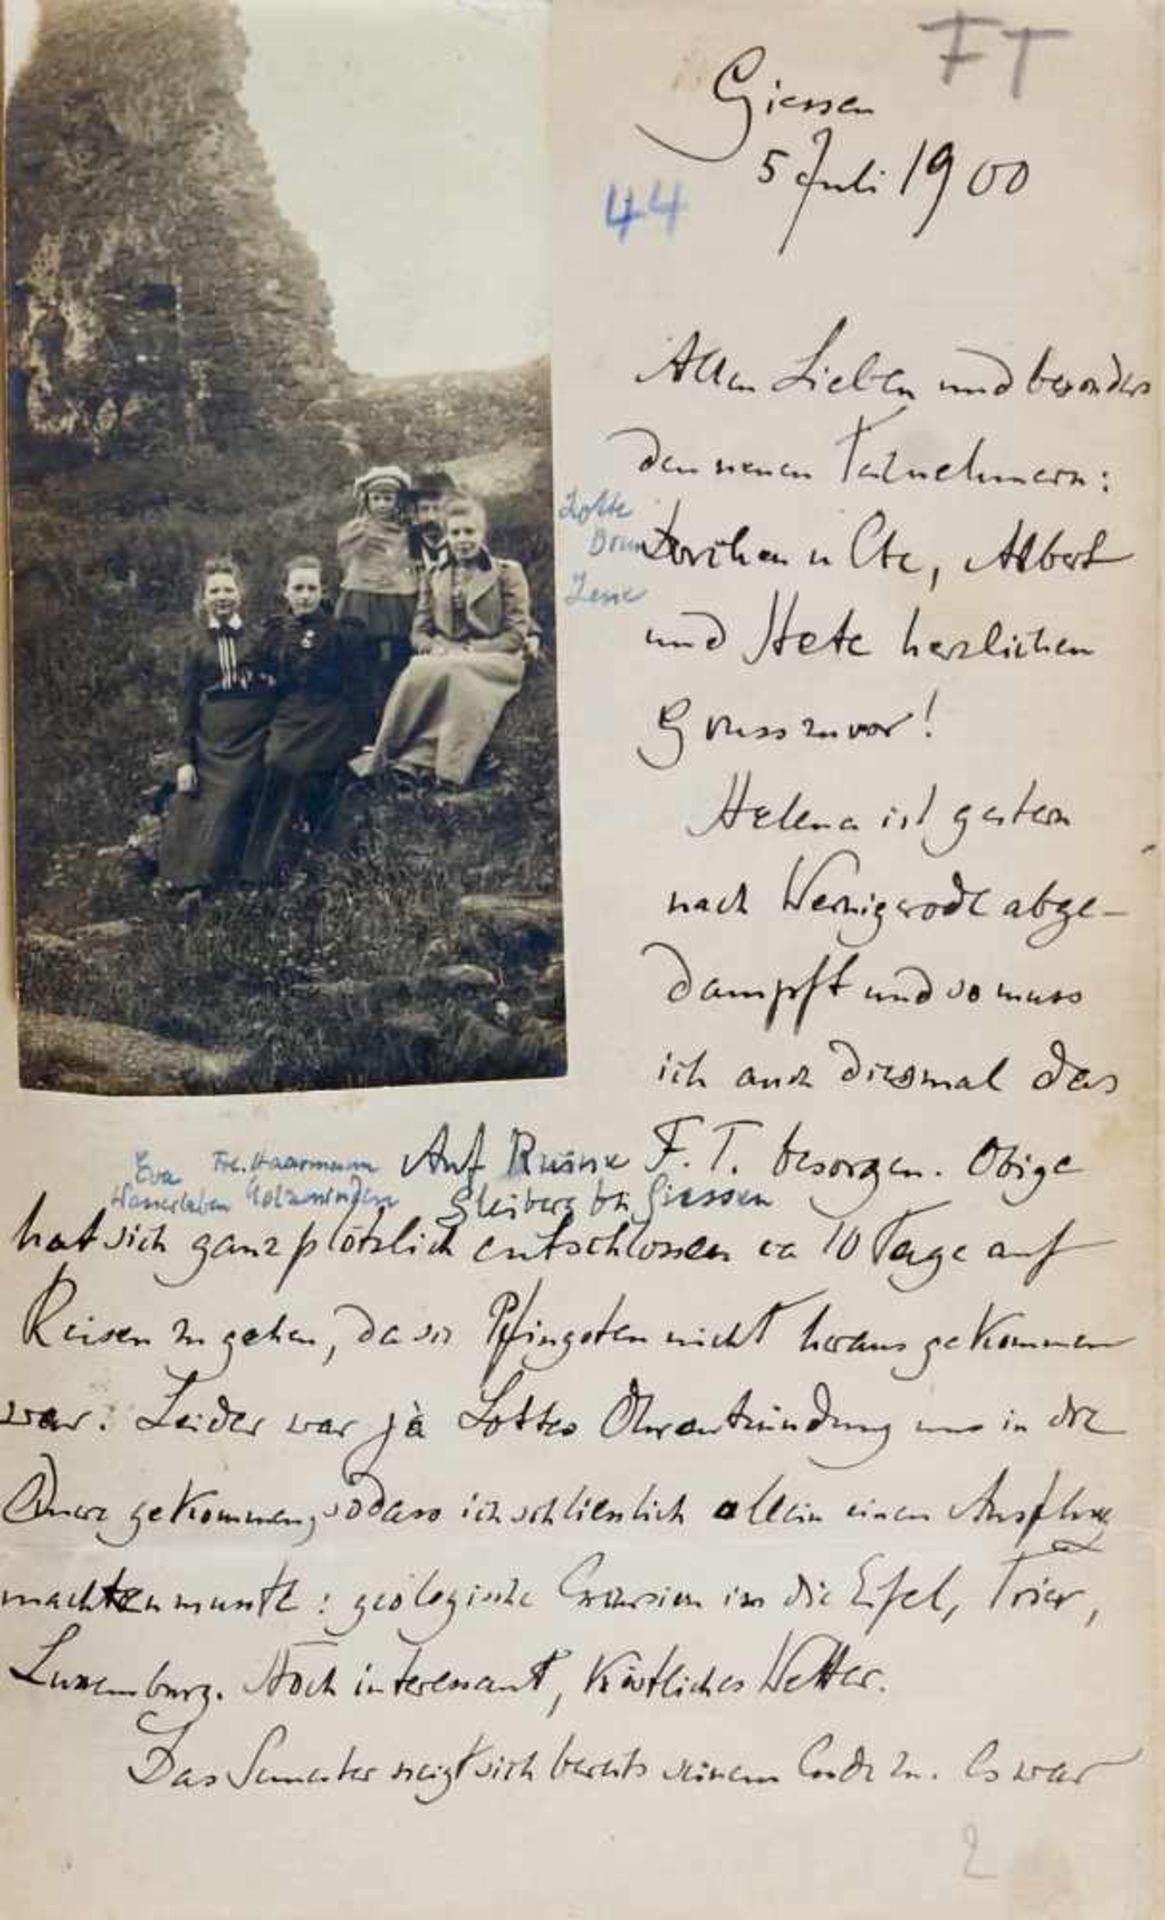 FT
Giessen
5 Juli 1900
44
Allen Lieben und besonders
den neuen Teilnehmern:
Lotte
Dorchen u Ote, Albert
Lene
und Hete herzlichen
Gruss zuvor!
Helena ist gestern
nach Wernigerode abge-
dampft und so muss
ich auch diesmal das
F. T. besorgen. Obige
Eva Frl. Haarmann Auf Ruine
Wasserleben Holzminden Gleiberg bei Giessen
hat sich ganz plötzlich entschlossen ca 10 Tage auf
Reisen zu gehen, da sie Pfingsten nicht herausgekommen
war. Leider war ja Lottes Ohrentzündung uns in die
Quere gekommen, sodass ich schliesslich allein einen Ausflug
machen musste: geologische Excursion in die Eifel, Trier,
Luxemburg. Hoch interessant, köstliches Wetter.
Das Semester neigt sich bereits seinem Ende zu. Es war
2